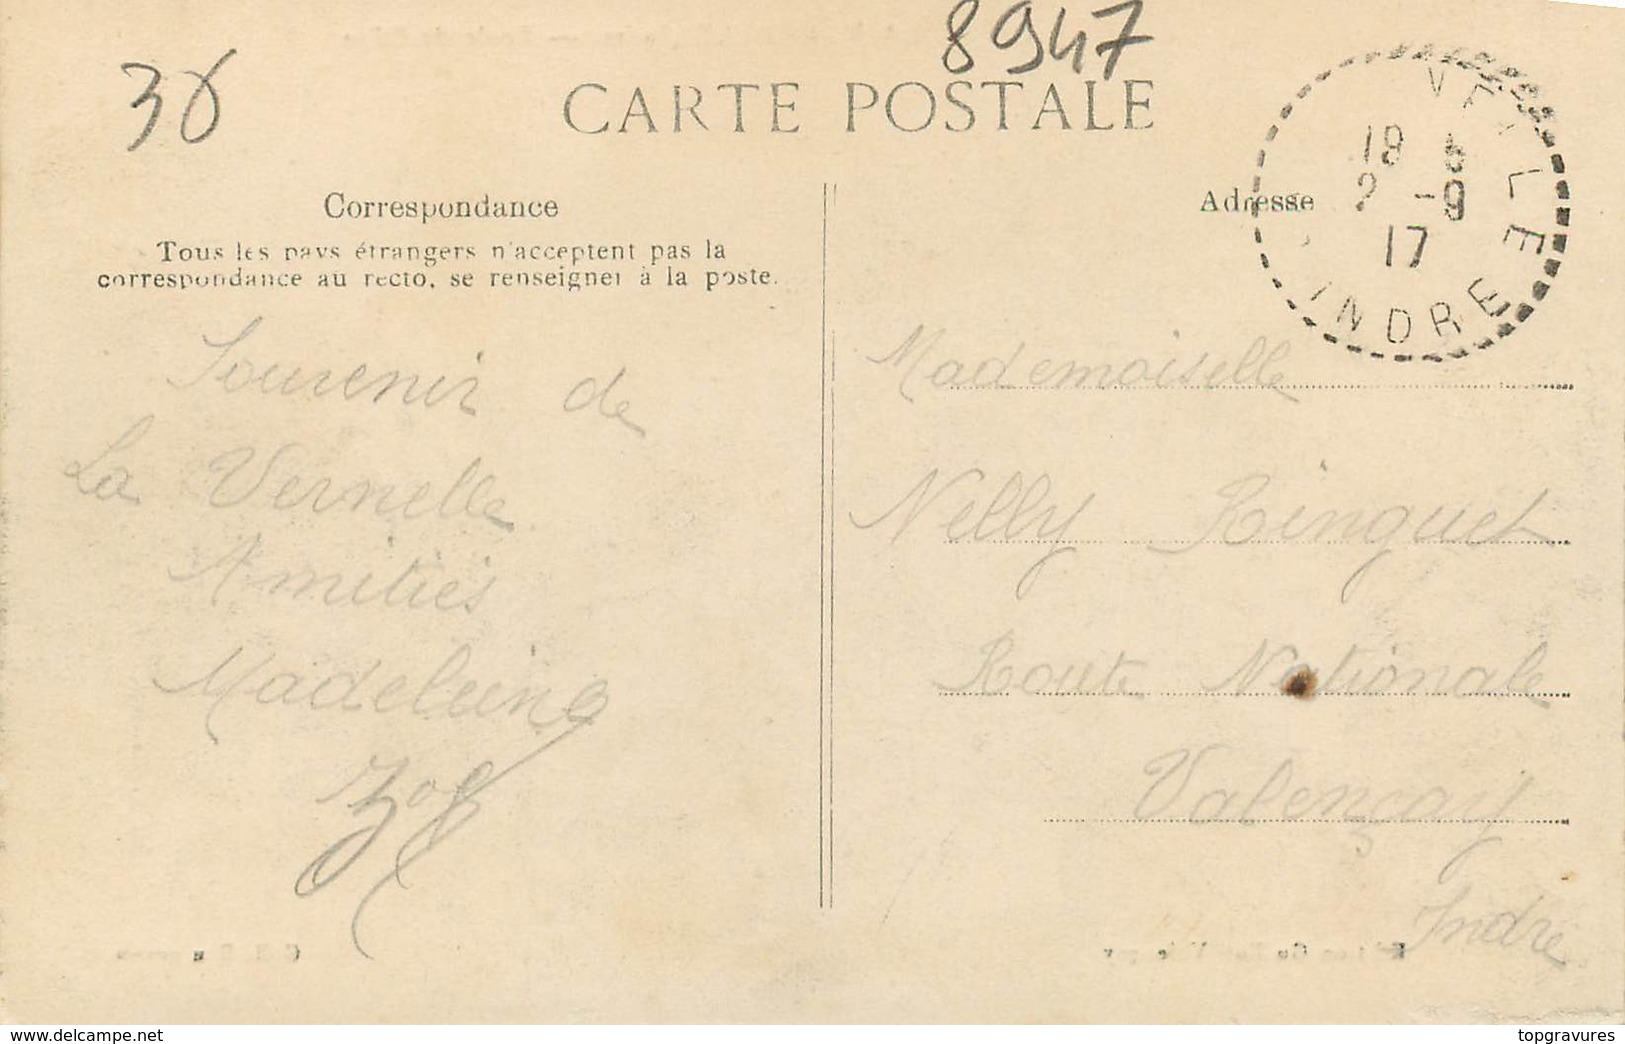 36
8947
CARTE POSTALE
Correspondance
Tous les pays étrangers n'acceptent pas la
correspondance au recto, se renseigner à la poste.
Souvenir de
La Vernelle
Amitiés
Madeleine
Adresse
18
2 -9
17
INDRE
Mademoiselle
Nelly Ringuet
Route Nationale
Valençay
Indre
delcampe.net
topgravures